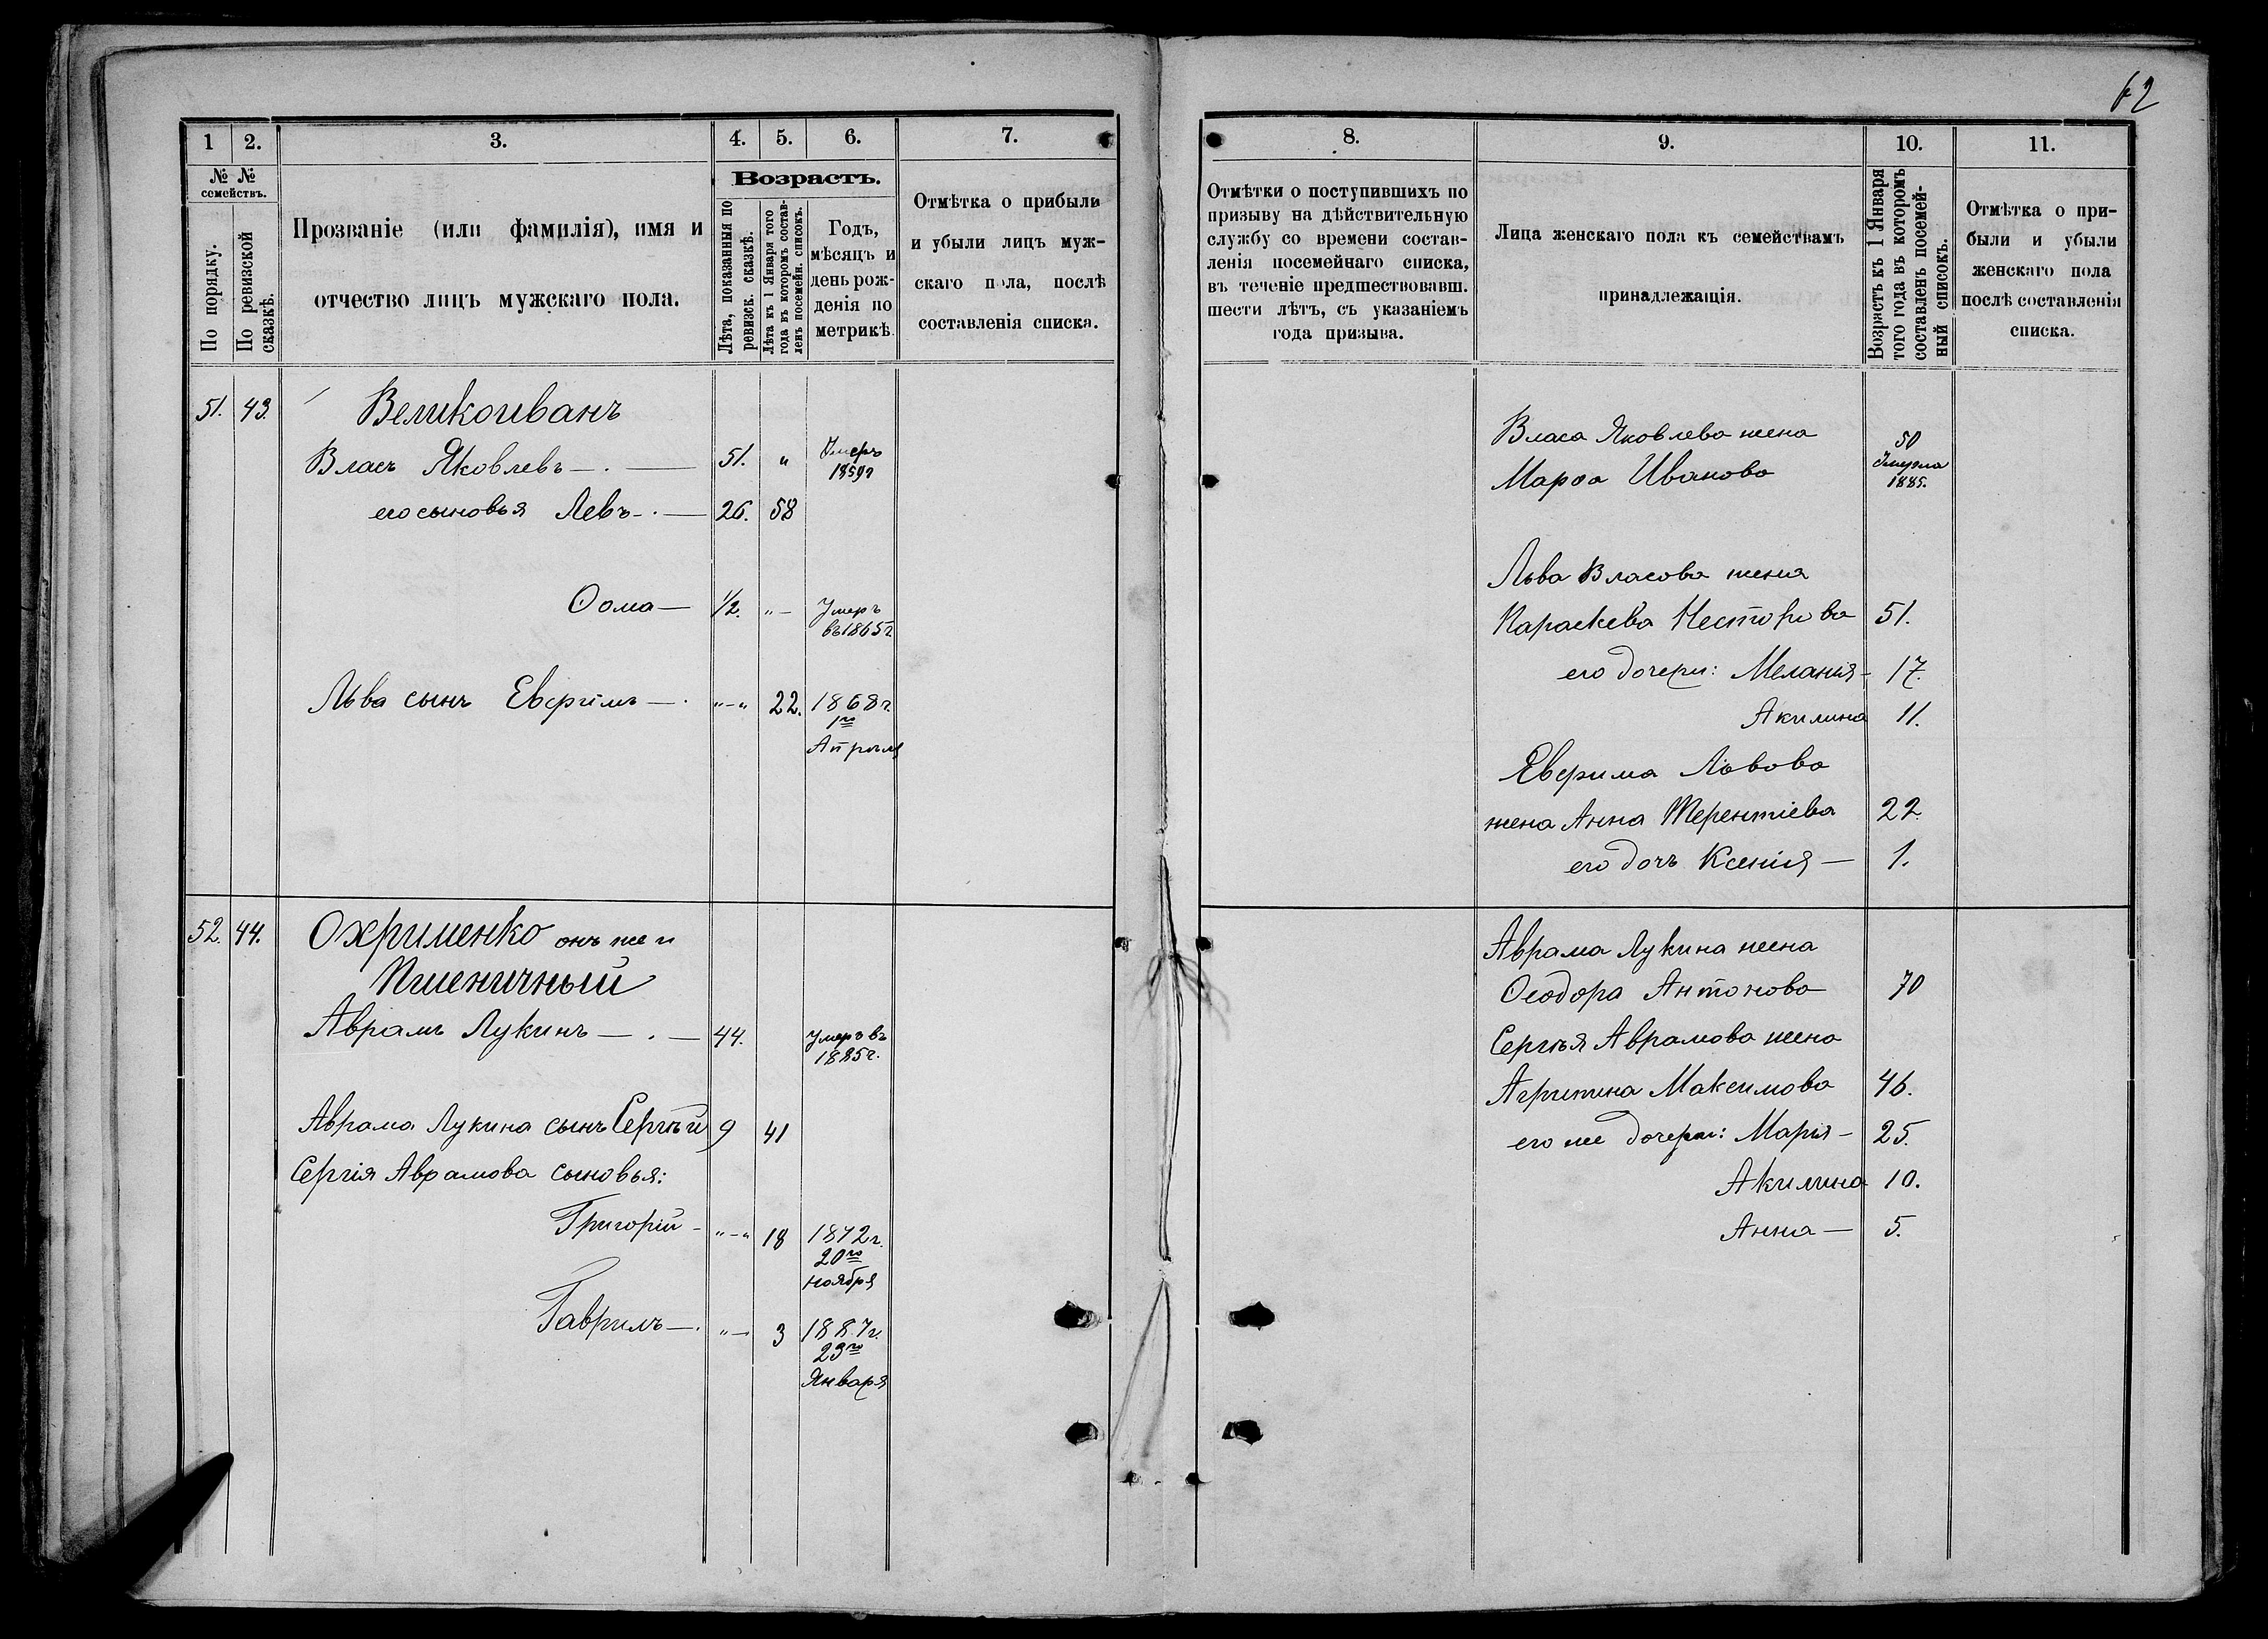 62
1 2. 3. 4. 5. 6. 7.
№ №
семействъ.
По порядку.
По ревизской сказкѣ.
Прозваніе (или фамилія), имя и
отчество лицъ мужскаго пола.
Возрастъ.
Лѣта, показанныя по
ревизск. сказкѣ.
Лѣта къ 1 Января того
года въ которомъ состав-
ленъ посемейн. списокъ.
Годъ,
мѣсяцъ и
день рож-
денія по
метрикѣ.
Отмѣтка о прибыли
и убыли лицъ муж-
скаго пола, послѣ
составленія списка.
51. 43. Великоиванъ
Власъ Яковлевъ —. — 51. „ Умеръ
1859г
его сыновья Левъ -. — 26. 58
Ѳома — 1/2. „ — Умеръ
въ 1865г
Льва сынъ Евфимъ — . „ — „ 22. 1868г.
1го
Апрѣля
52. 44. Охрименко онъ же и
Пшеничный
Аврамъ Лукинъ — . — 44. Умеръ въ
1885г.
Аврама Лукина сынъ Сергѣй 9 41
Сергія Аврамова сыновья:
Григорій - „ — „ 18 1872г.
20го
ноября
Гаврилъ — . „ — 3 1887г.
23го
Января
8. 9. 10. 11.
Отмѣтки о поступившихъ по
призыву на дѣйствительную
службу со времени состав-
ленія посемейнаго списка,
въ теченіе предшествовавш.
шести лѣтъ, съ указаніемъ
года призыва.
Лица женскаго пола къ семействамъ
принадлежащія.
Возрастъ къ 1 Января
того года въ которомъ
составленъ посемей-
ный списокъ.
Отмѣтка о при-
были и убыли
женскаго пола
послѣ составленія
списка.
Власа Яковлева жена
Марѳа Иванова 50
Умерла
1885.
Льва Власова жена
Параскева Несторова 51.
его дочери: Меланія - 17.
Акилина 11.
Евфима Львова
жена Анна Терентіева 22
его дочь Ксенія — 1.
Аврама Лукина жена
Ѳеодора Антонова 70
Сергѣя Аврамова жена
Агрипина Максимова 46.
его же дочери: Марія - 25.
Акилина 10.
Анна — 5.